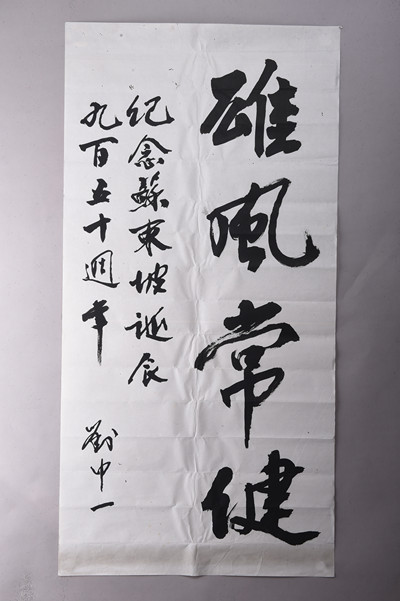 雄風常健
紀念蘇東坡誕辰
九百五十週年
劉中一